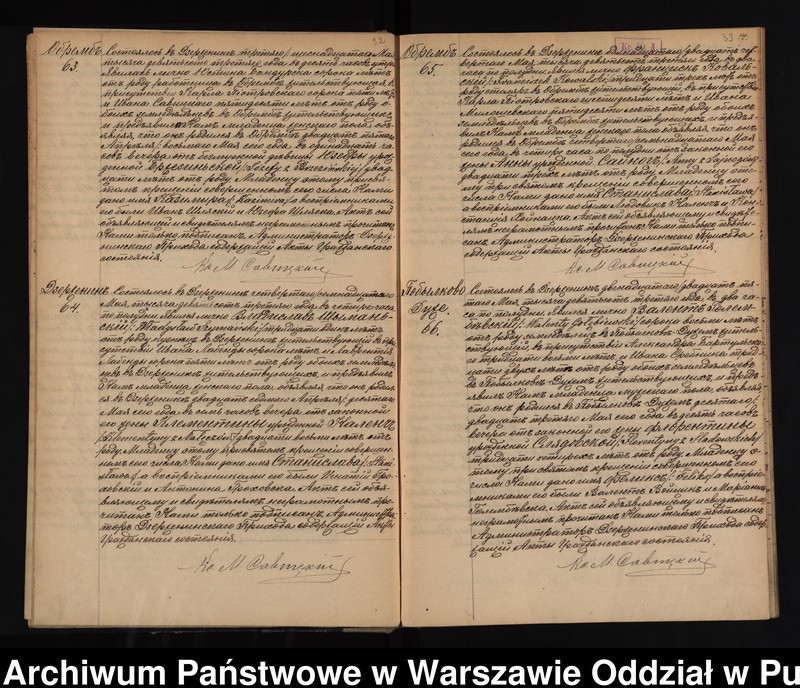 32
Обрембъ
63.
Состоялось въ Дзерженинѣ третьяго/шестнадцатаго Мая
тысяча девятьсотъ третьяго года въ десять часовъ утра.
Явилась лично
лѣтъ
отъ роду работница въ Обрембѣ жительствующая, въ
присутствіи Карла Піотровскаго сорока пяти лѣтъ
и Ивана Савицкаго пятидесяти лѣтъ отъ роду о-
боихъ земледѣльцевъ въ Обрембѣ жительствующихъ
и предъявила Намъ младенца женскаго пола объ-
являя, что онъ родился въ Обрембѣ двадцать пятаго
Апрѣля/восьмаго Мая сего года въ одинадцать ча-
совъ вечера отъ безмужной дѣвицы Юзефы урож-
денной /Józefy z Brzezińskiej/ двад-
цати лѣтъ отъ роду. Младенцу этому при свя-
томъ крещеніи совершенномъ сего числа Нами
дано имя /Kazimiera/, а воспріемниками
его были Иванъ и Юзефа Актъ сей
объявляющей и свидѣтелямъ неграмотнымъ прочитанъ
Нами только подписанъ. Администраторъ Дзерже-
нинскаго Прихода содержащій Акты Гражданскаго
состоянія.
Кс. М. Савицкій
Дзерженинъ
64.
Состоялось въ Дзерженинѣ четвертаго/семнадцатаго
Мая, тысяча девятьсотъ третьяго года, въ четыре часа
по полудни. Явился лично Владиславъ Шымань-
скій /Władysław Szymański/ тридцати лѣтъ
отъ роду въ Дзерженинѣ жительствующій въ при-
сутствіи Ивана сорока лѣтъ и Лаврентія
сорока пяти лѣтъ отъ роду обоихъ земледѣль-
цевъ въ Дзерженинѣ жительствующихъ, и предъявилъ
Намъ младенца мужскаго пола объявляя, что онъ родил-
ся въ Дзерженинѣ двадцать седьмаго Апрѣля/десятаго
Мая сего года въ семь часовъ вечера отъ законной
его жены Клементины урожденной
/Klementyny z / двадцати восьми лѣтъ отъ
роду. Младенцу этому при святомъ крещеніи совершен-
номъ сего числа Нами дано имя Станиславъ /Stani-
sława/, а воспріемниками его были Игнатій Гро-
ховскій и Антонина Гроховска. Актъ сей объя-
вляющему и свидѣтелямъ неграмотнымъ про-
читанъ Нами только подписанъ. Администра-
торъ Дзерженинскаго Прихода содержащій Акты
Гражданскаго состоянія.
Кс. М. Савицкій
33
Обрембъ
65.
Состоялось въ Дзерженинѣ одинадцатаго/двадцать чет-
вертаго Мая, тысяча девятьсотъ третьяго года, въ два
часа по полудни. Явился лично Францискъ Коваль-
скій /Franciszek Kowalski/ тридцати трехъ лѣтъ отъ
роду столяръ въ Обрембѣ жительствующій, въ присутствіи
Карла Піотровскаго лѣтъ и Ивана
пятидесяти лѣтъ отъ роду обоихъ
земледѣльцевъ въ Обрембѣ жительствующихъ и предъя-
вилъ Намъ младенца женскаго пола объявляя, что онъ
родился въ Обрембѣ четвертаго/семнадцатаго Мая
сего года, въ четыре часа по полудни отъ законной его
жены Анны урожденной /Anny z /
двадцати трехъ лѣтъ отъ роду. Младенцу это-
му при святомъ крещеніи совершенномъ сего
числа Нами дано имя Станислава /Stanisława/
а воспріемниками его были Людвикъ и Кон-
станція Актъ сей объявляющему и свидѣте-
лямъ неграмотнымъ прочитанъ Нами только подпи-
санъ. Администраторъ Дзерженинскаго Прихода
содержащій Акты Гражданскаго состоянія.
Кс. М. Савицкій
Побылково
Дуже.
66.
Состоялось въ Дзерженинѣ двенадцатаго/двадцать пя-
таго Мая, тысяча девятьсотъ третьяго года, въ два ча-
са по полудни. Явился лично Валентъ Голем-
бѣвскій /Walenty Gołębiewski/ сорока восьми лѣтъ
отъ роду земледѣлецъ въ Побылковѣ-Дужемъ житель-
ствующій, въ присутствіи Александра
тридцати восьми лѣтъ и Ивана трид-
цати двухъ лѣтъ отъ роду обоихъ земледѣльцевъ
въ Побылковѣ-Дужемъ жительствующихъ, и предъ-
явилъ Намъ младенца мужескаго пола, объявляя
что онъ родился въ Побылковѣ Дужемъ десятаго/
двадцать третьяго Мая сего года въ десять часовъ
вечера отъ законной его жены Флорентины
урожденной /Florentyny z /
тридцати четырехъ лѣтъ отъ роду. Младенцу э-
тому при святомъ крещеніи совершенномъ сего
числа Нами дано имя Феликсъ /Feliks/ а воспріе-
мниками его были Валентъ и Марianna
Актъ сей объявляющему и свидѣтелямъ
неграмотнымъ прочитанъ Нами только подписанъ.
Администраторъ Дзерженинскаго Прихода содер-
жащій Акты Гражданскаго состоянія.
Кс. М. Савицкій
Archiwum Państwowe w Warszawie Oddział w Pu